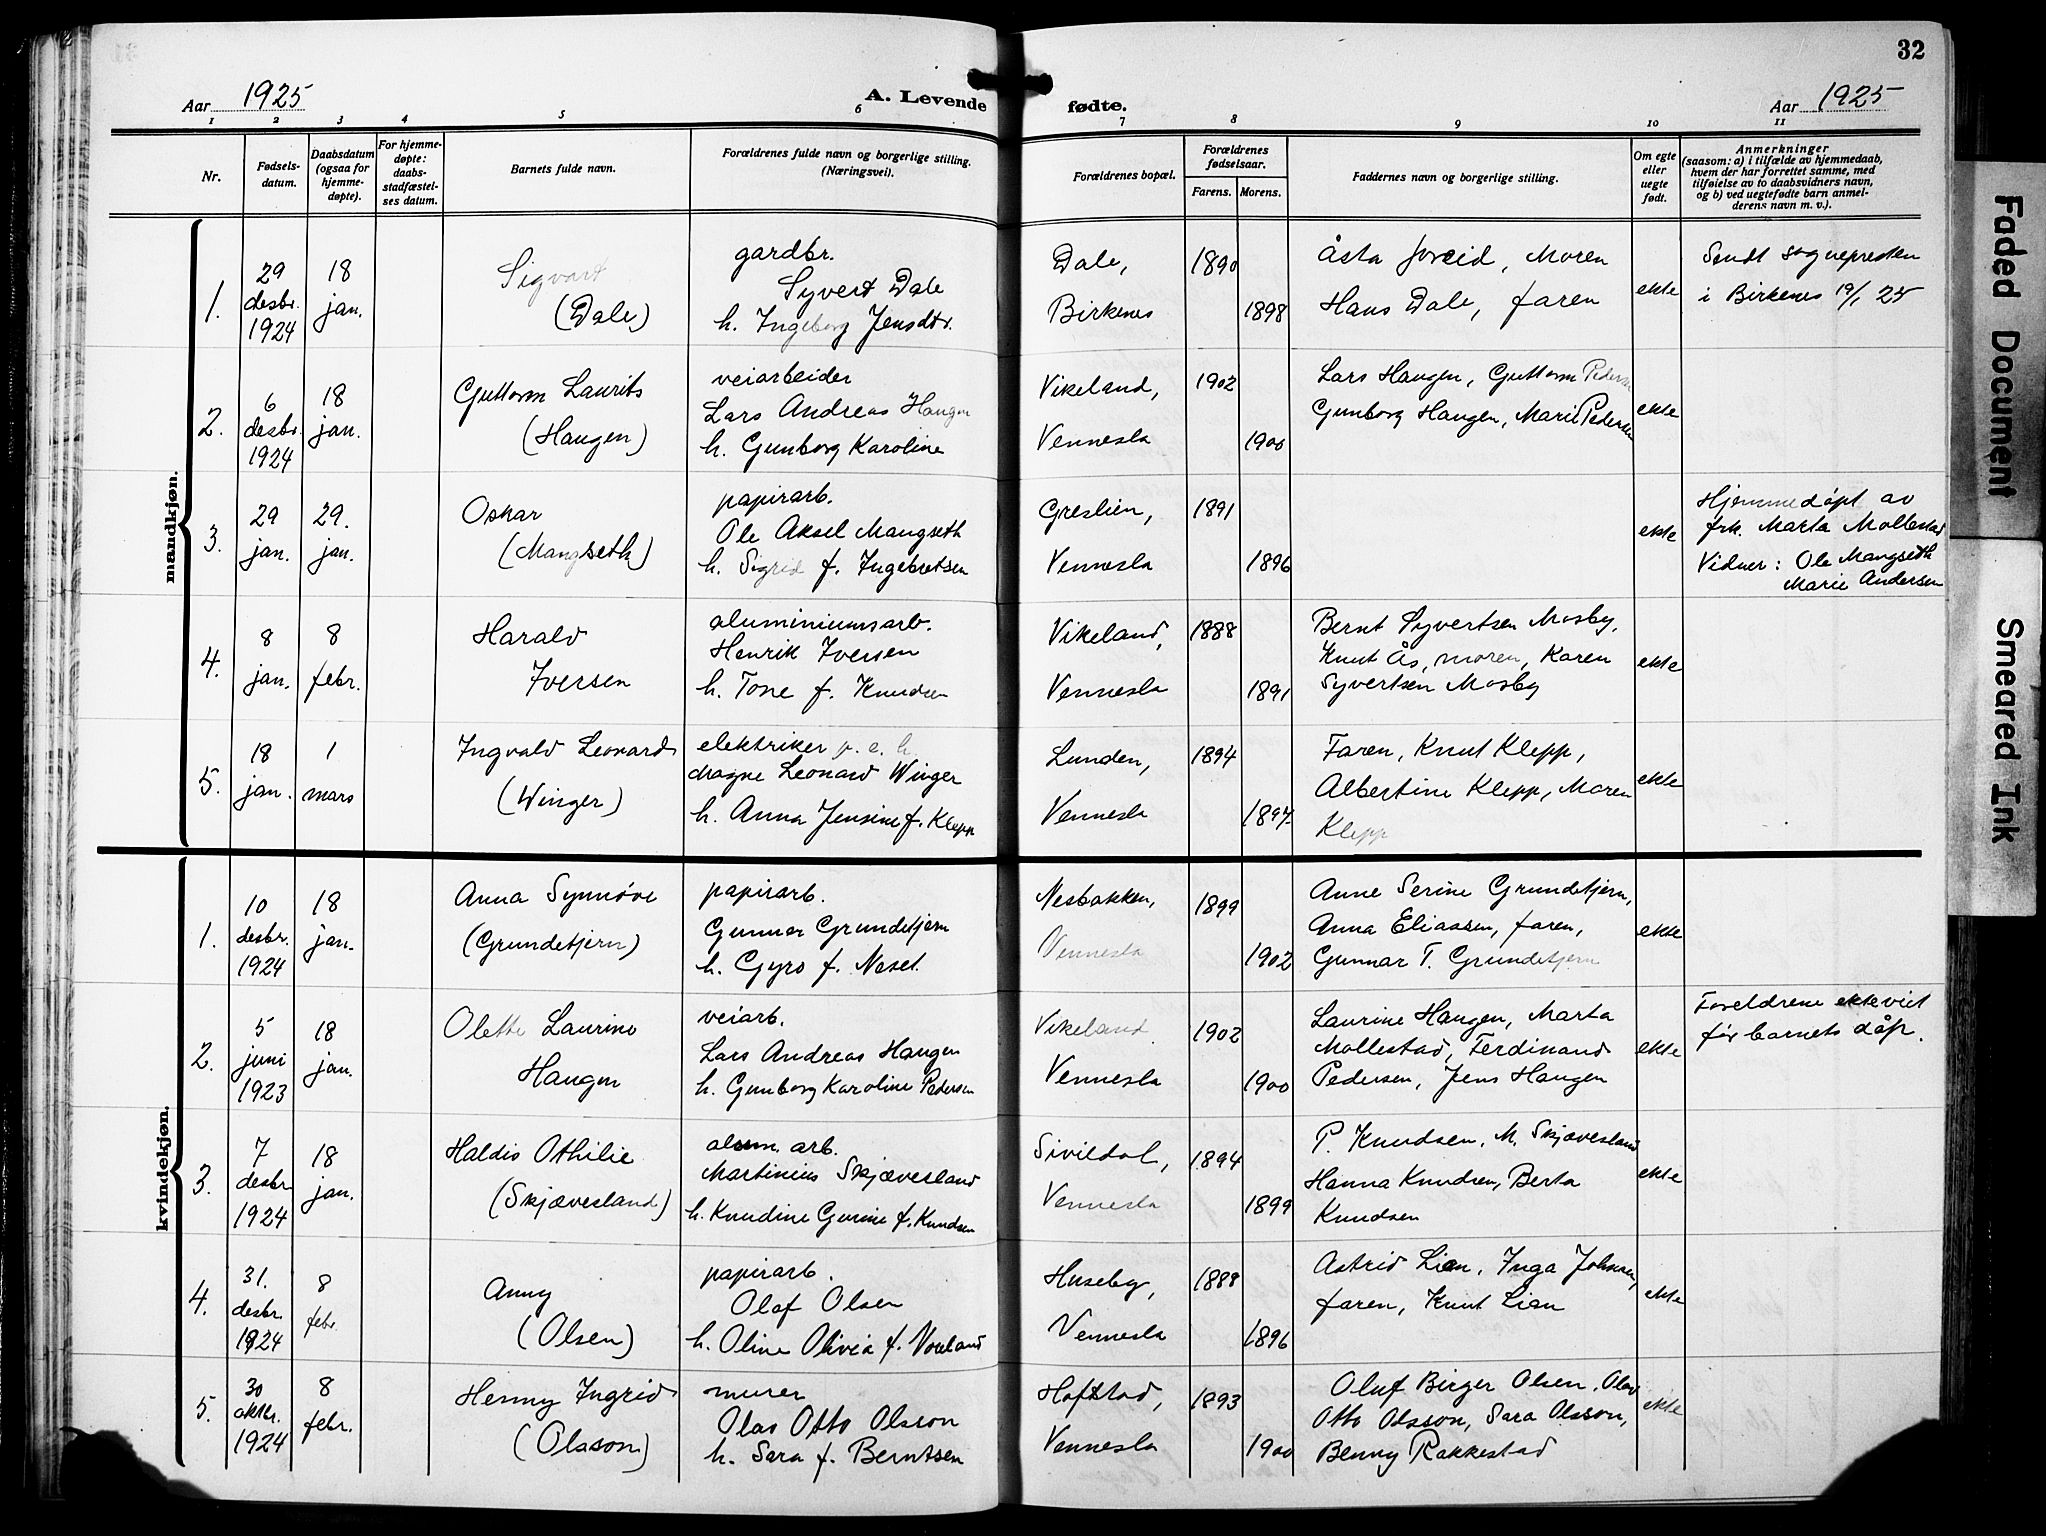 32
Aar 1925
A. Levende fødte.
Aar 1925
1 2 3 4 5 6 7 8 9 10 11
Nr.
Fødsels-
datum.
Daabsdatum
(ogsaa for
hjemme-
døpte).
For hjemme-
døpte:
daabs-
stadfæstel-
ses datum.
Barnets fulde navn.
Forældrenes fulde navn og borgerlige stilling.
(Næringsvei).
Forældrenes bopæl.
Forældrenes
fødselsaar.
Farens. Morens.
Faddernes navn og borgerlige stilling.
Om egte
eller
uegte
født.
Anmerkninger
(saasom: a) i tilfælde av hjemmedaab,
hvem der har forrettet samme, med
tilføielse av to daabsvidners navn,
og b) ved uegtefødte barn anmel-
derens navn m. v.).
mandkjøn.
1.
29
desbr.
1924
18
jan.
Sigvart
(Dale)
gardbr.
Syvert Dale
h. Ingeborg Jensdtr.
Dale,
Birkenes
1890
1898
Åsta Joreid, Moren
Hans Dale, faren
ekte
Sendt sognepresten
i Birkenes 19/1 25
2.
6
desbr.
1924
18
jan.
Guttorm Laurits
(Haugen)
veiarbeider
Lars Andreas Haugen
h. Gunborg Karoline
Vikeland,
Vennesla
1902
1900
Lars Haugen, Guttorm Pedersen
Gunborg Haugen, Marie Pedersen
ekte
3.
29
jan.
29.
jan.
Oskar
(Mangseth)
papirarb.
Ole Aksel Mangseth
h. Sigrid f. Ingebretsen
Greslien,
Vennesla
1891
1896
ekte
Hjemmedøpt av
frk. Marta Mollestad
Vidner: Ole Mangseth
Marie Andersen
4.
8
jan.
8
febr.
Harald
Iversen
aluminiumsarb.
Henrik Iversen
h. Tone f. Knudsen
Vikeland,
Vennesla
1888
1891
Bernt Syvertsen Mosby,
Knut Ås, moren, Karen
Syvertsen Mosby
ekte
5.
18
jan.
1
mars
Ingvald Leonard
(Winger)
elektriker p. e. h.
Magne Leonard Winger
h. Anna Jensine f. Klepp
Lunden,
Vennesla
1894
1897
Faren, Knut Klepp,
Albertine Klepp, Maren
Klepp
ekte
kvindekjøn.
1.
10
desbr.
1924
18
jan.
Anna Synnøve
(Grundetjern)
papirarb.
Gunnar Grundetjern
h. Gyro f. Neset
Nesbakken,
Vennesla
1899
1902
Anne Serine Grundetjern,
Anna Eliassen, faren,
Gunnar T. Grundetjern
ekte
2.
5
juni
1923
18
jan.
Olette Laurine
Haugen
veiarb.
Lars Andreas Haugen
h. Gunborg Karoline Pedersen
Vikeland
Vennesla
1902
1900
Laurine Haugen, Marta
Mollestad, Ferdinand
Pedersen, Jens Haugen
ekte
Foreldrene ekteviet
før barnets dåp.
3.
7
desbr
1924
18
jan.
Haldis Othilie
(Skjævesland)
alum. arb.
Martinius Skjævesland
h. Knudine Gurine f. Knudsen
Sivildal,
Vennesla
1894
1899
P. Knudsen, M. Skjævesland
Hanna Knudsen, Berta
Knudsen
ekte
4.
31.
desbr.
1924
8
febr.
Anny
(Olsen)
papirarb.
Olaf Olsen
h. Oline Olivia f. Voreland
Huseby,
Vennesla
1888
1896
Astrid Lien, Inga Johnsen,
faren, Knut Lian
ekte
5.
30
oktbr.
1924
8
febr.
Henny Ingrid
(Olsson)
murer
Olav Otto Olsson
h. Sara f. Berntsen
Hoftstad,
Vennesla
1893
1900
Oluf Birger Olsen, Olav
Otto Olsson, Sara Olsson,
Benny Rakkestad
ekte
Faded Document
Smeared Ink